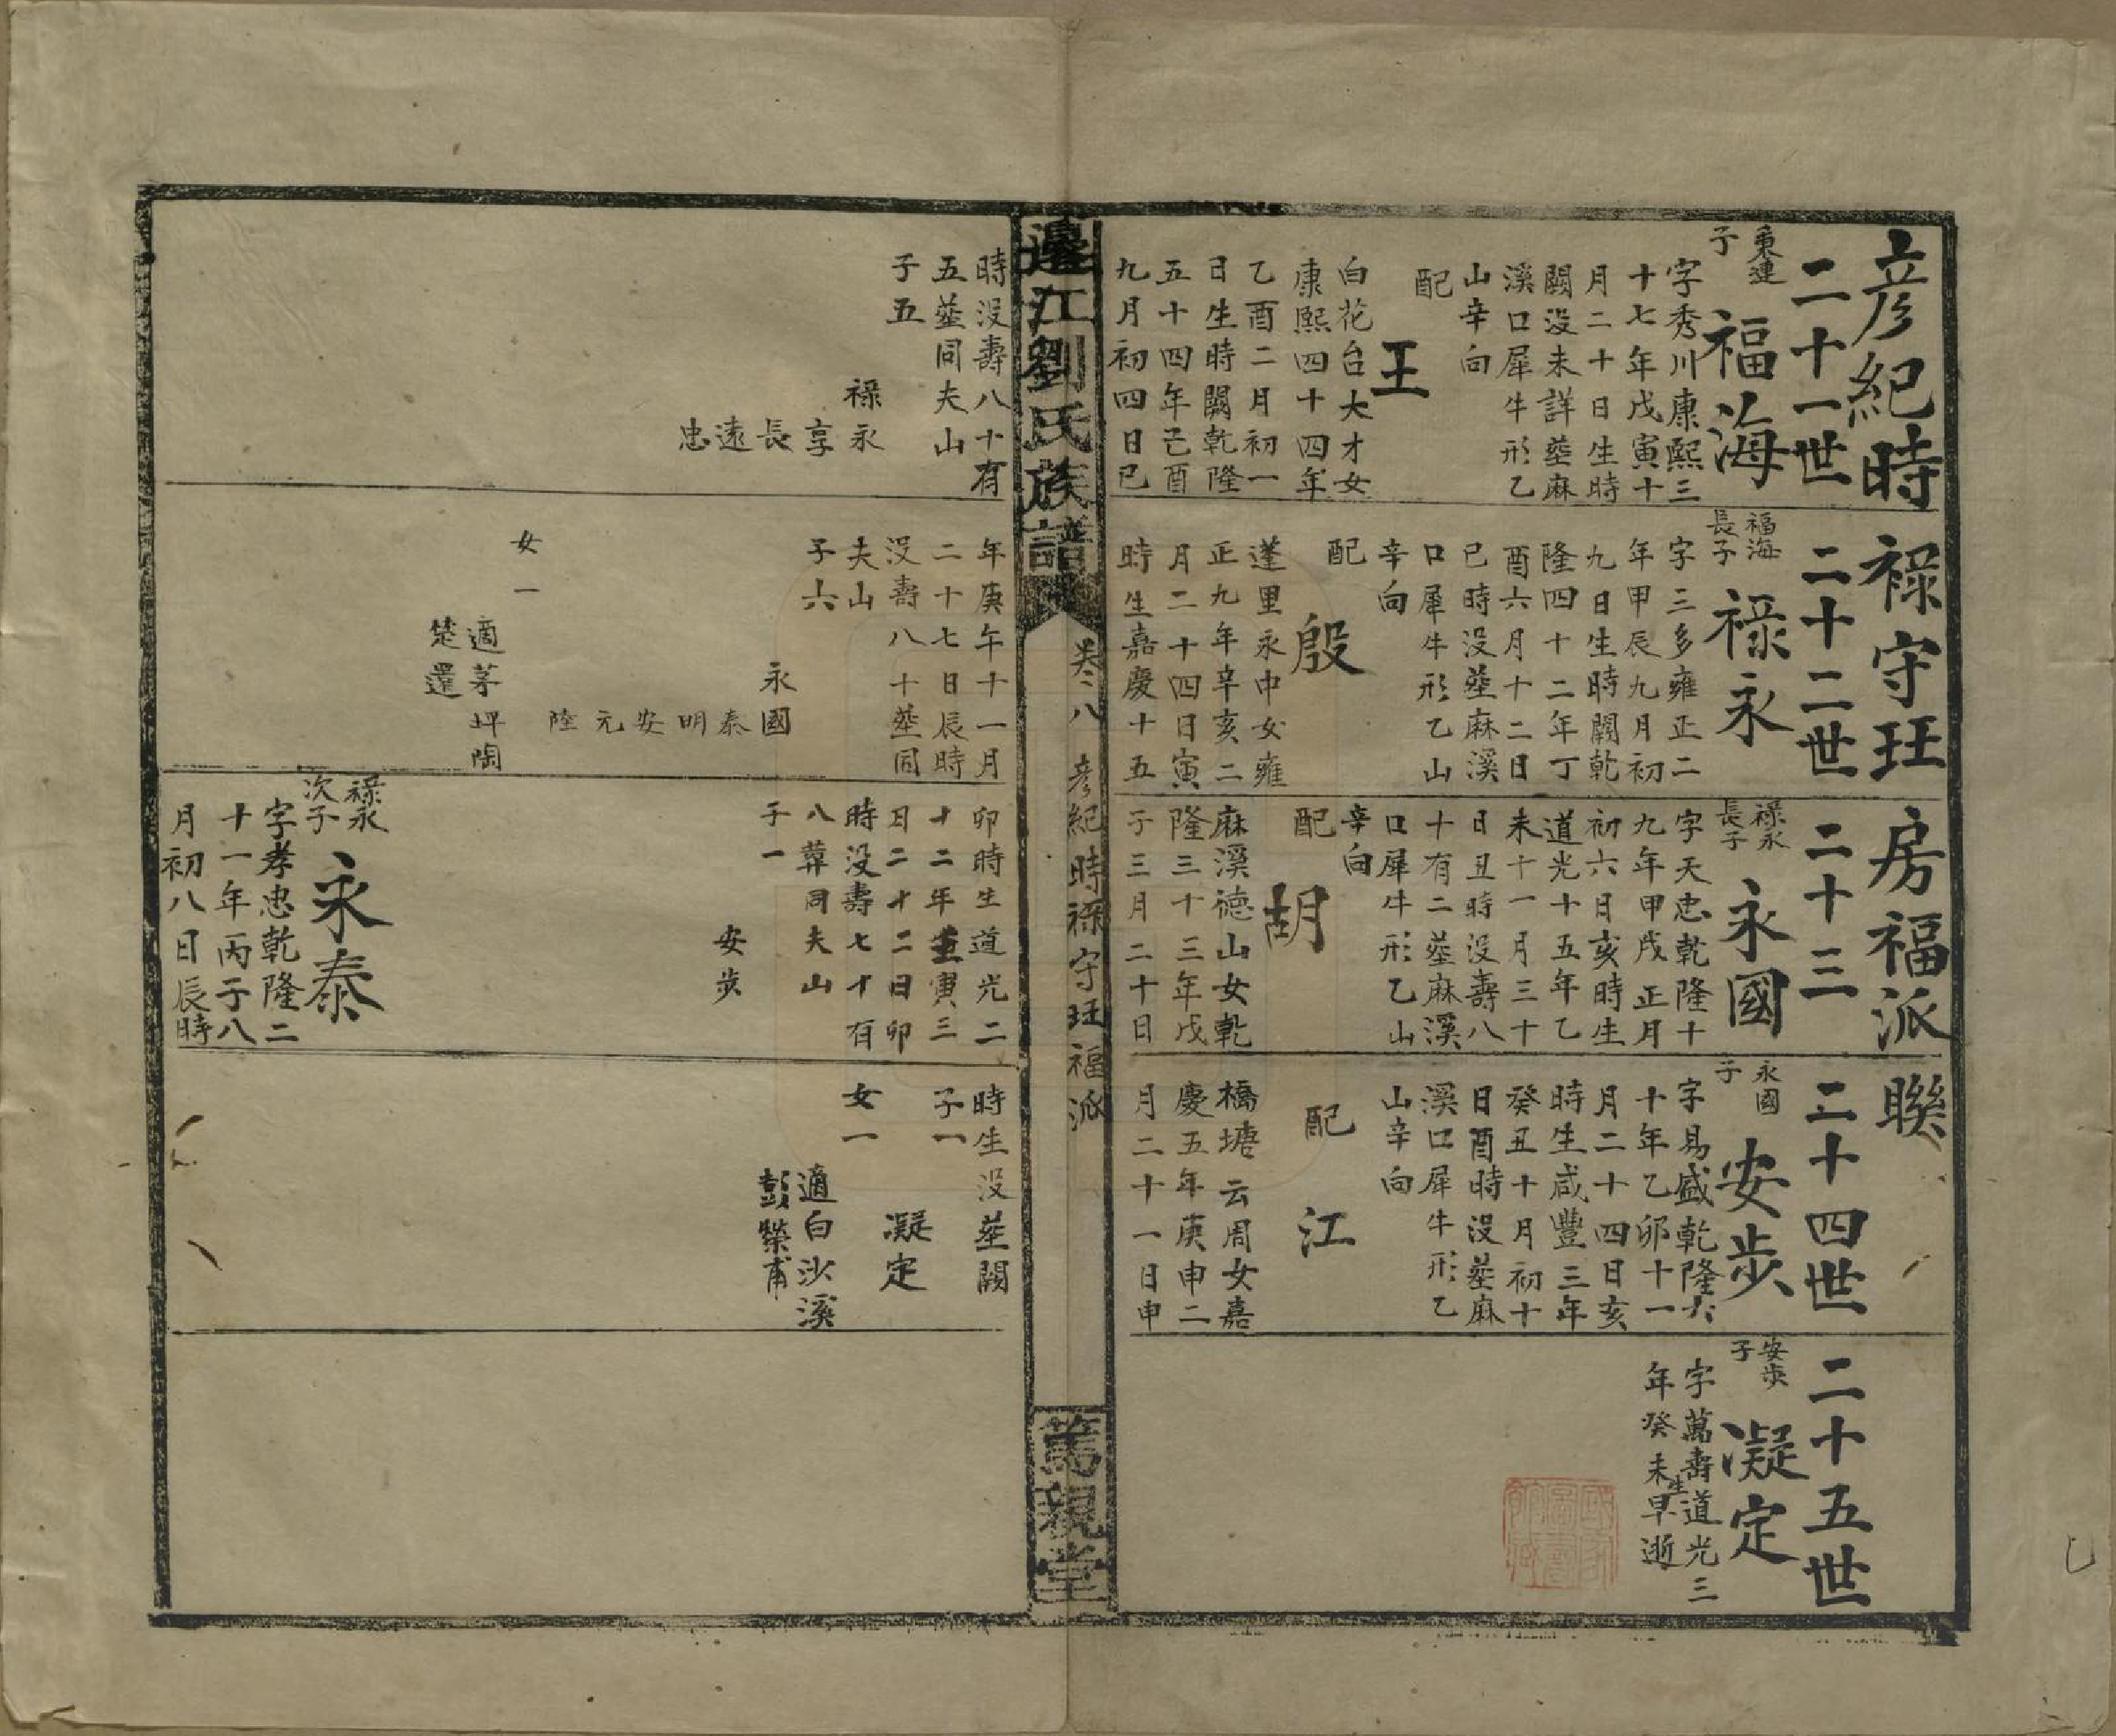 彦紀時禄守玨房福派聯
二十一世
秉連
子
福海
字秀川康熙三
十七年戊寅十
月二十日生時
闕没未詳塟麻
溪口犀牛形乙
山辛向
配
王
白花台大才女
康熙四十四年
乙酉二月初一
日生時闕乾隆
五十四年己酉
九月初四日巳
時没壽八十有
五塟同夫山
子五
禄永
享
長
遠
忠
二十二世
福海
長子
禄永
字三多雍正二
年甲辰九月初
九日生時闕乾
隆四十二年丁
酉六月十二日
巳時没塟麻溪
口犀牛形乙山
辛向
配
殷
蓬里永中女雍
正九年辛亥二
月二十四日寅
時生嘉慶十五
年庚午十一月
二十七日辰時
没壽八十塟同
夫山
子六
永國
泰
明
安
元
陸
女一
適茅坪陶
楚還
二十三
禄永
長子
永國
字天忠乾隆十
九年甲戌正月
初六日亥時生
道光十五年乙
未十一月三十
日丑時没壽八
十有二塟麻溪
口犀牛形乙山
辛向
配
胡
麻溪德山女乾
隆三十三年戊
子三月二十日
卯時生道光二
十二年壬寅三
月二十二日卯
時没壽七十有
八葬同夫山
子一
安步
禄永
次子
永泰
字孝忠乾隆二
十一年丙子八
月初八日辰時
二十四世
永國
子
安步
字易盛乾隆六
十年乙卯十一
月二十四日亥
時生咸豐三年
癸丑十月初十
日酉時没塟麻
溪口犀牛形乙
山辛向
配
江
橋塘云周女嘉
慶五年庚申二
月二十一日申
時生没塟闕
子一
凝定
女一
適白沙溪
彭榮甫
二十五世
安步
子
凝定
字萬壽道光三
年癸未生早逝
邉江劉氏族譜
卷八
彦紀時禄守玨福派
篤親堂